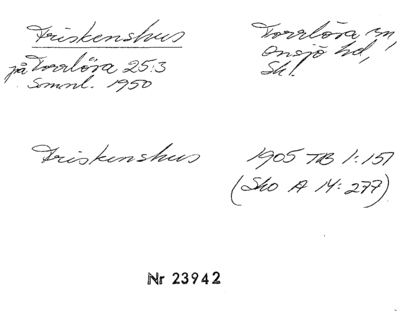 Friskenshus
Torrlösa sn
Onsjö hd,
på Torrlösa 25:3
Sk.
Smnl. 1950
Friskenshus
1905 TB 1:151
(Sko A 14:277)
Nr 23942